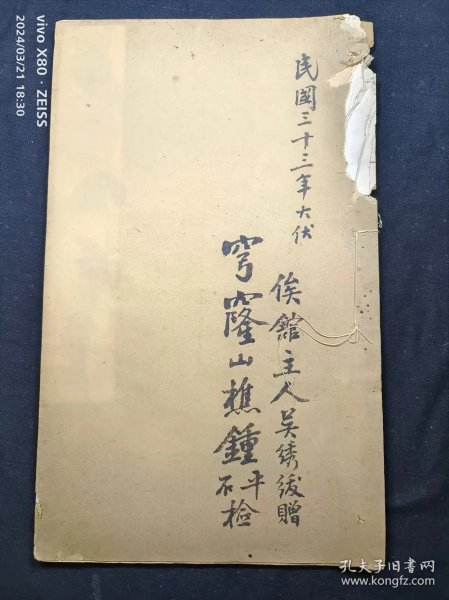 民國三十三年大伏
俟館主人吴绣绂贈
穹窿山樵鍾
平
石檢
vivo X80 · ZEISS
2024/03/21 18:30
孔夫子旧書网
www.kongfz.com